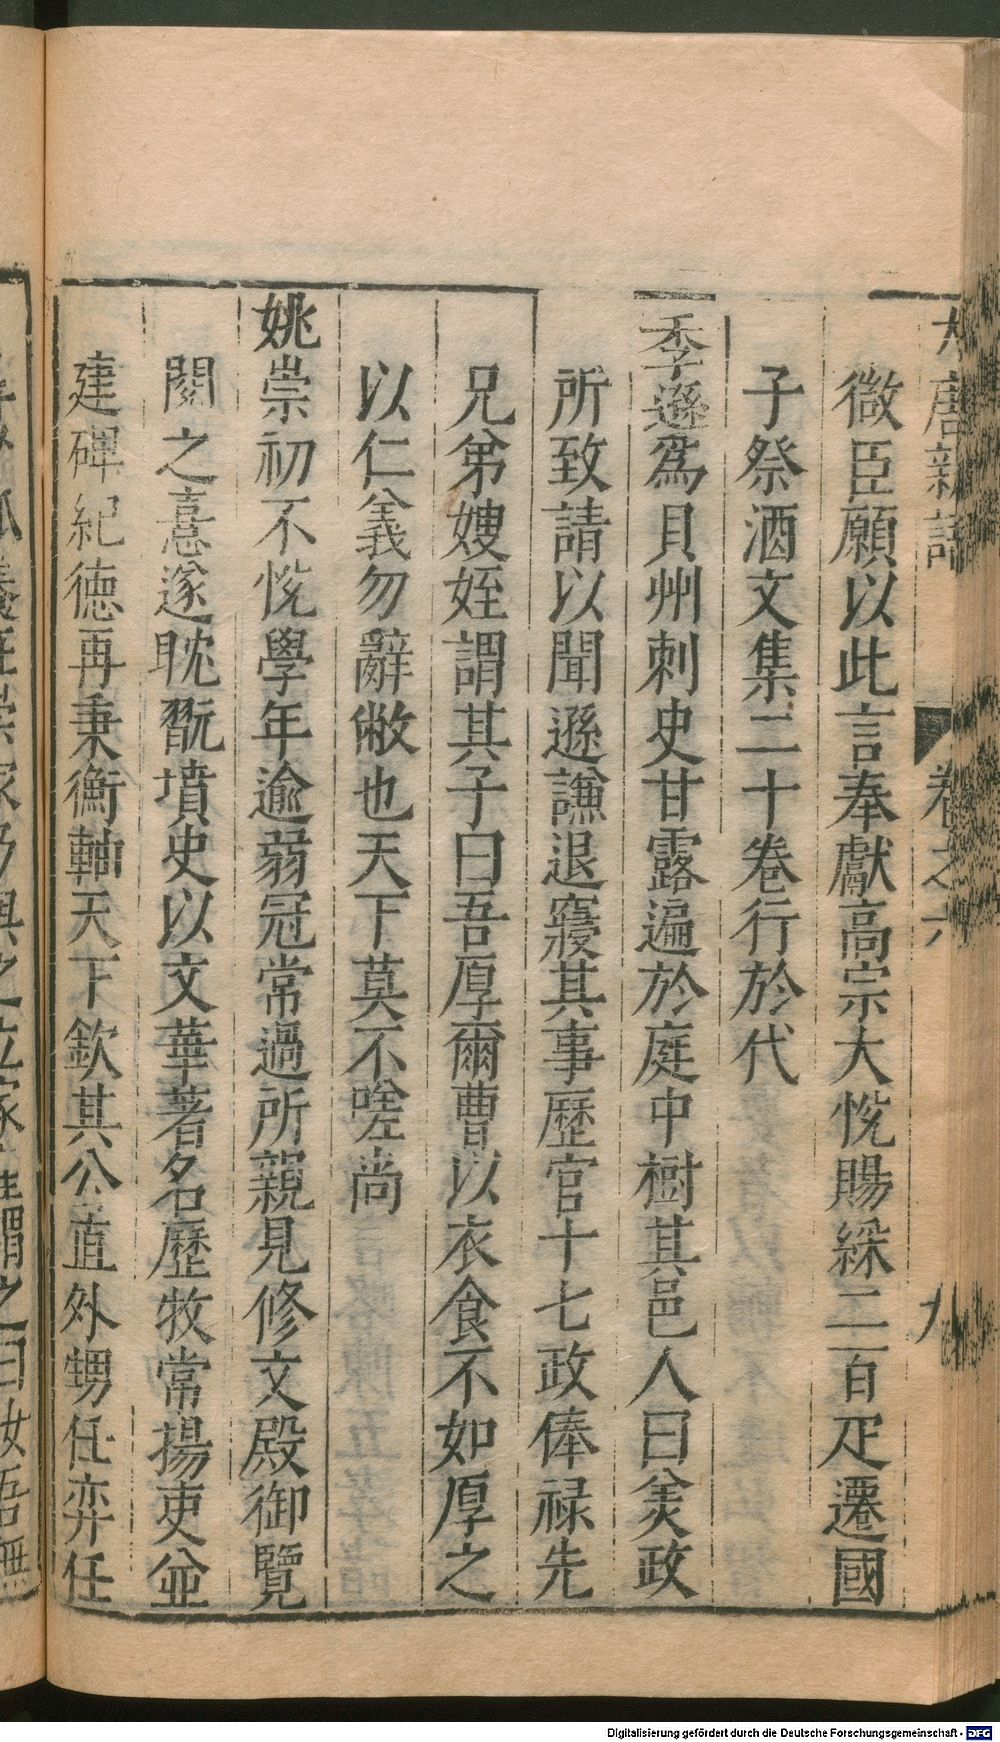 大唐新語 卷之六 九
微臣願以此言奉獻高宗大悅賜綵二百疋遷國
子祭酒文集二十卷行於代
季遜爲貝州刺史甘露遍於庭中樹其邑人曰美政
所致請以聞遜謙退寢其事歷官十七政俸禄先
兄弟嫂姪謂其子曰吾厚爾曹以衣食不如厚之
以仁義勿辭敝也天下莫不嗟尚
姚崇初不悅學年逾弱冠常過所親見修文殿御覽
閱之憙遂耽翫墳史以文華著名歷牧常揚吏並
建碑紀德再秉衡軸天下欽其公直外甥任弈任
養任崇家乃與之立家 謂之曰汝吾無
Digitalisierung gefördert durch die Deutsche Forschungsgemeinschaft - DFG